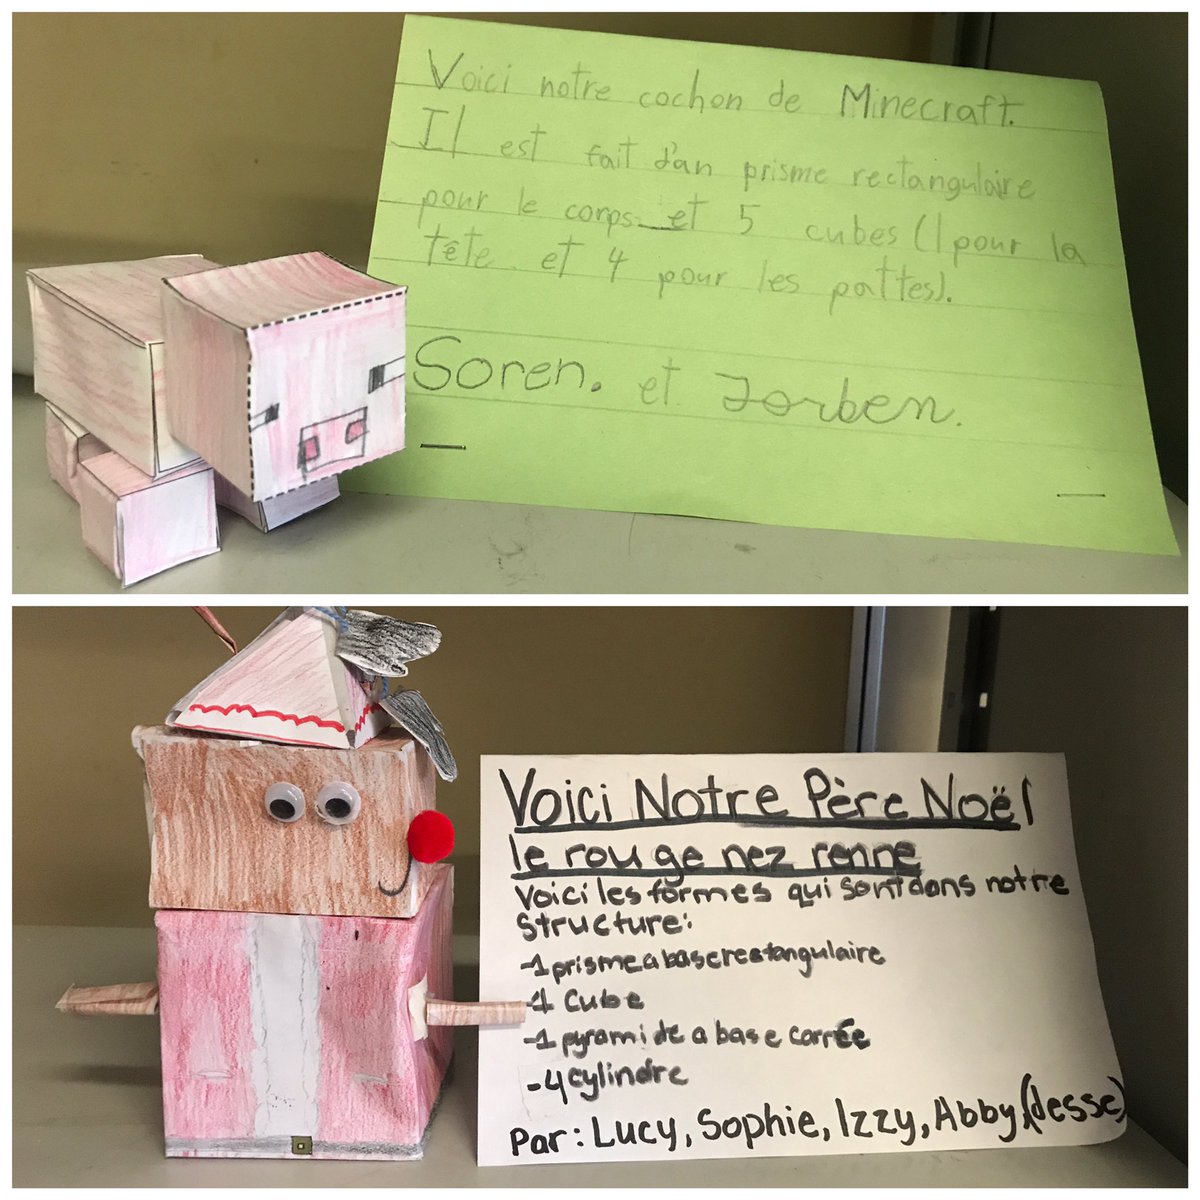 Voici notre cochon de Minecraft.
Il est fait d'an prisme rectangulaire
pour le corps et 5 cubes (1 pour la
tête et 4 pour les pattes).
Soren. et Jorben.
Voici Notre Père Noël
le rouge nez renne
Voici les formes qui sont dans notre
structure:
-1 prisme a base rectangulaire
-1 Cube
-1 pyramide a base carrée
-4 cylindre
Par: Lucy, Sophie, Izzy, Abby, (desse)